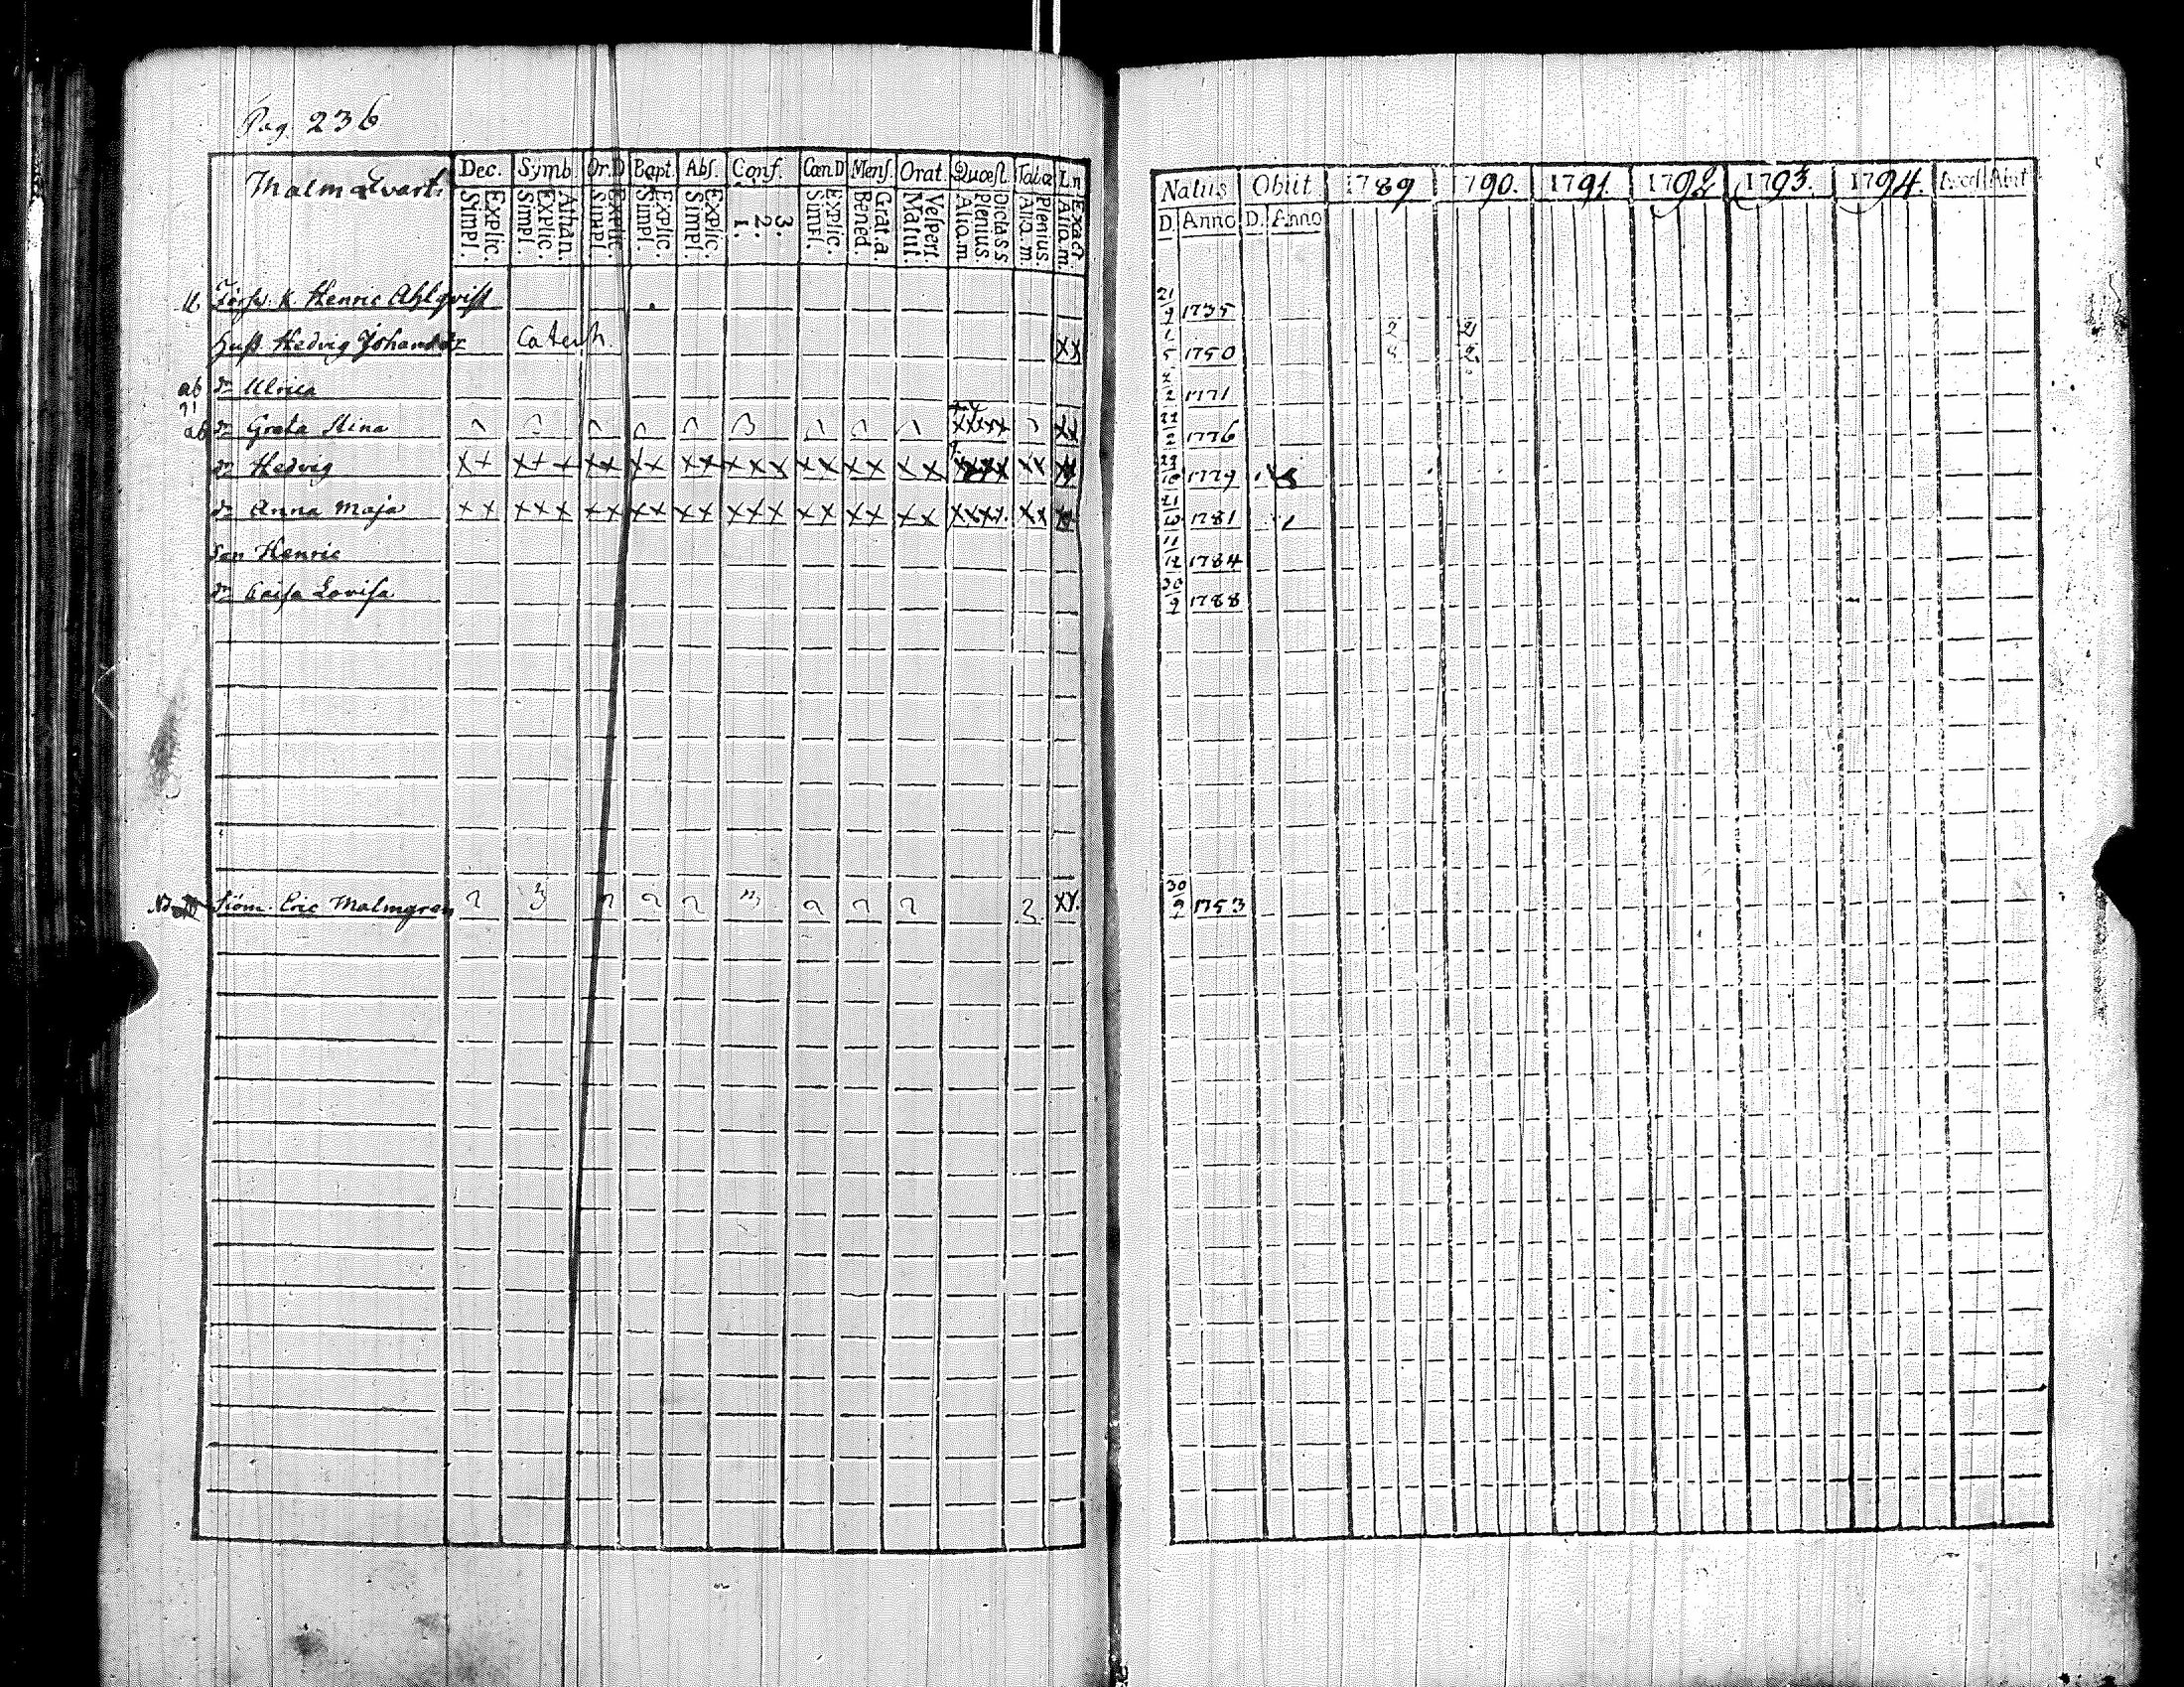 Pag. 236
Malm Qvart.
Dec. Symb. Or.D Bapt. Abs. Conf. Cœn.D Mens. Orat. Quæst. Ta Ln
Explic. Simpl. Athan. Explic. Simpl. Explic. Simpl. Explic. Simpl. Explic. Simpl. 3. 2. 1. Explic. Simpl. Grat.a. Bened. Vespert. Matut. Plenius. Aliq.m. Plenius. Aliq.m. Exact. Aliq.m.
Natus Obiit 1789 1790. 1791. 1792 1793. 1794. Abiit
D. Anno D. Anno
K Henric Ahlqvist 21/9 1735
Hust Hedvig Johansdr Catech. xx 1/5 1750 2 2 2
ab dr Ulrica 2/2 1771
91
ab dr Greta Stina xxxxx xx 22/2 1776
dr Hedvig xx xxx xx xx xx xxx xx xx xx xxxx xx xx 29/10 1779
dr Anna Maja xx xxx xx xx xx xxx xx xx xx xxxx xx 21/10 1781
Son Henric 11/12 1784
dr Caisa Lovisa 30/9 1788
Siöm. Eric Malmgren 2 3 2 2 2 3 2 2 2 3 xx. 30/9 1753